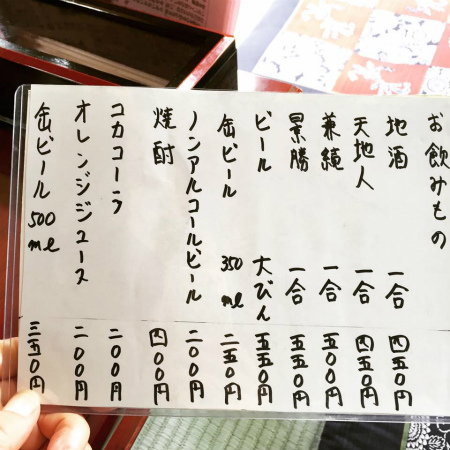 お飲みもの
地酒 一合 四五〇円
天地人 一合 四五〇円
兼續 一合 五〇〇円
景勝 一合 五五〇円
ビール 大びん 五五〇円
缶ビール 350ml 二五〇円
ノンアルコールビール 二〇〇円
焼酎 四〇〇円
コカコーラ 二〇〇円
オレンジジュース 二〇〇円
缶ビール 500ml 三五〇円